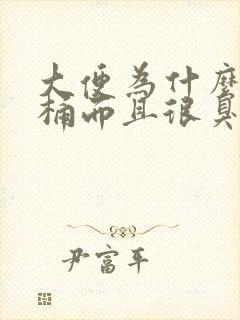 大便为什么
桶而且很臭
尹富平